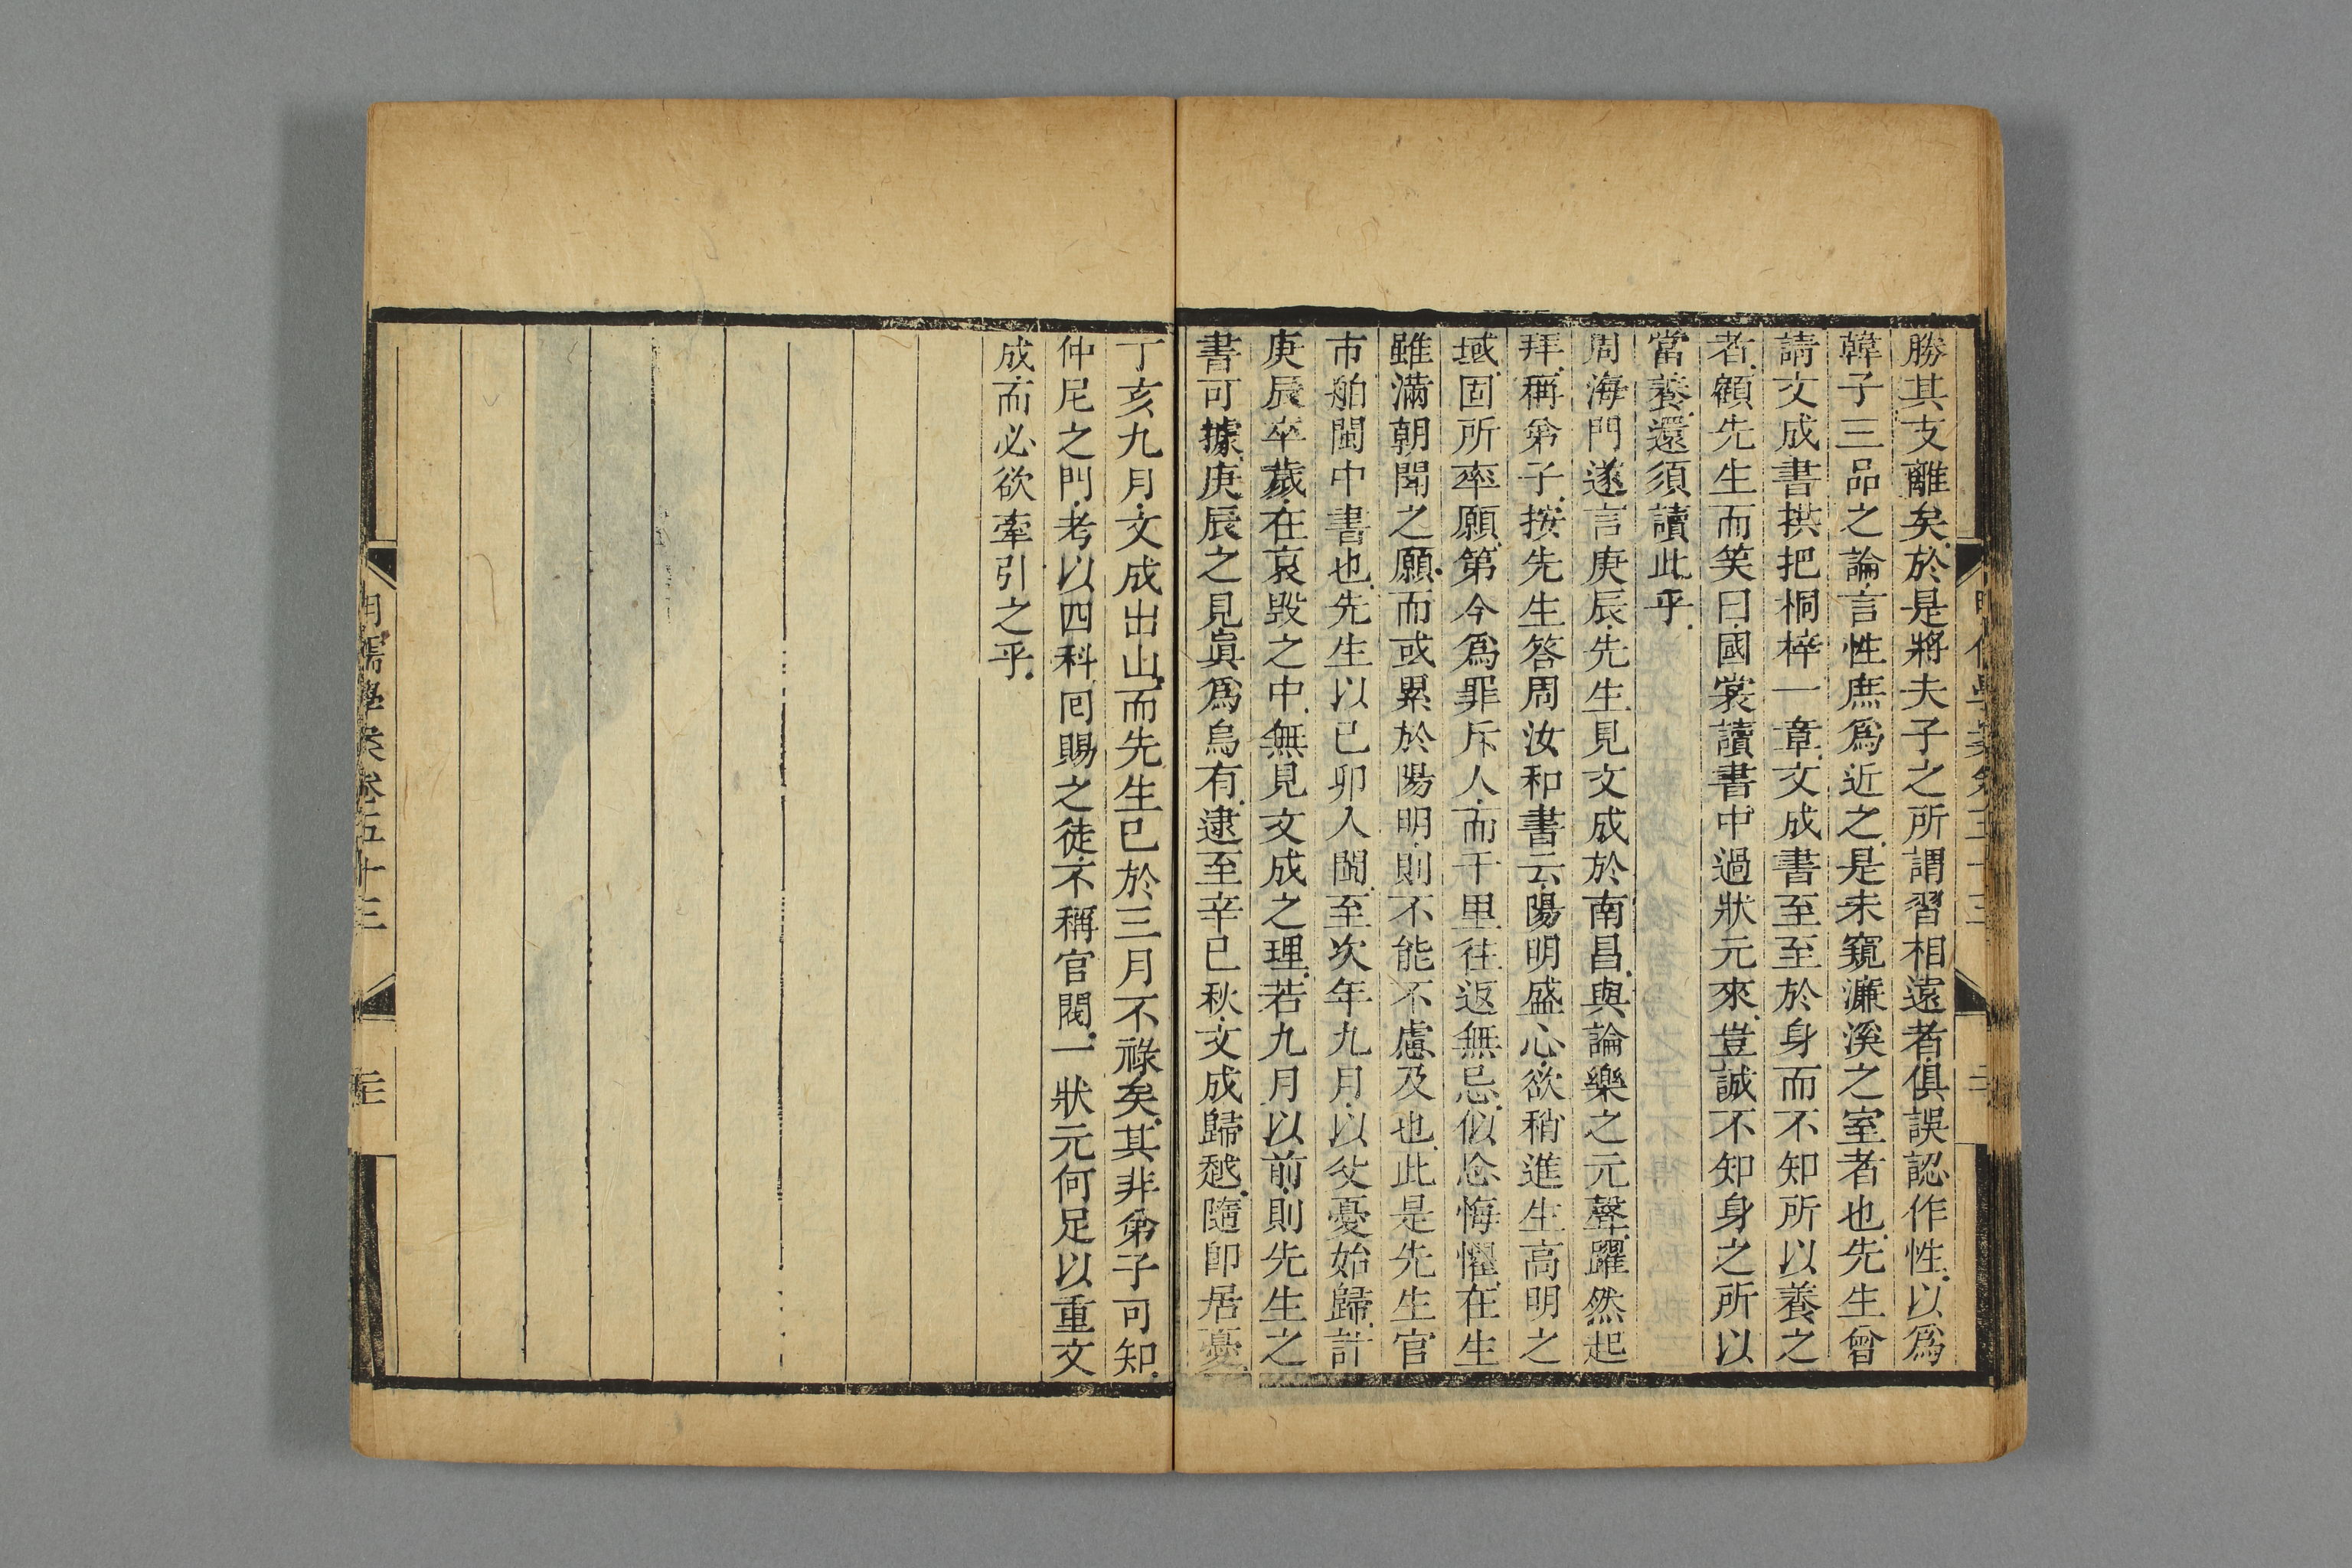 勝其支離矣於是將夫子之所謂習相遠者俱誤認作性以爲
韓子三品之論言性庶爲近之是未窺濂溪之室者也先生曾
請文成書拱把桐梓一章文成書至至於身而不知所以養之
者顧先生而笑曰國裳讀書中過狀元來豈誠不知身之所以
當養還須讀此乎
周海門遂言庚辰先生見文成於南昌與論樂之元聲躍然起
拜稱弟子按先生答周汝和書云陽明盛心欲稍進生高明之
域固所率願第今爲罪斥人而千里往返無忌似忩悔懼在生
雖滿朝聞之願而或累於陽明則不能不慮及也此是先生官
市舶閩中書也先生以己卯入閩至次年九月以父憂始歸計
庚辰卒歲在哀毀之中無見文成之理若九月以前則先生之
書可據庚辰之見眞爲烏有逮至辛巳秋文成歸越隨卽居憂
丁亥九月文成出山而先生已於三月不祿矣其非弟子可知
仲尼之門考以四科囘賜之徒不稱官閥一狀元何足以重文
成而必欲牽引之乎
明儒學案卷五十三